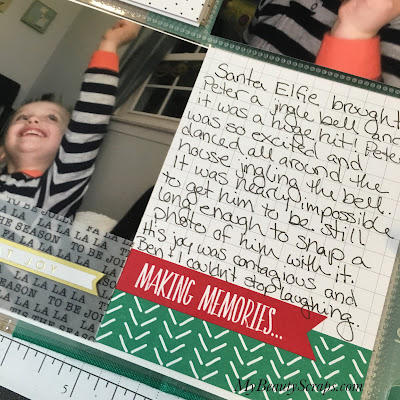 Santa Elfie brought
Peter a jingle bell and
it was a huge hit! Peter
was so excited and
danced all around the
house jingling the bell.
It was nearly impossible
to get him to be still
long enough to snap a
photo of him with it.
His joy was contagious and
Ben & I couldn't stop laughing.
MAKING MEMORIES...
TO BE JOLLY
LA LA LA LA LA LA
THE SEASON TO BE JO
LA LA LA LA LA LA
THE SEASON TO BE
JOY
5
MyBeautyScraps.com